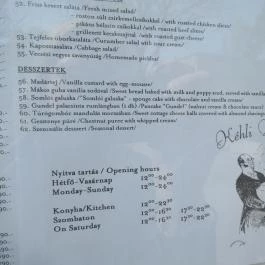 52. Friss kevert saláta /Fresh mixed salad/
- roston sült csirkemellcsíkokkal / with roasted chicken slices/
- pikáns bélszín csíkokkal / with roasted beef slices/
- grillezett kecskesajttal / with roasted goat cheese/
53. Tejfeles uborkasaláta /Cucumber salad with sour cream/
54. Káposztasaláta /Cabbage salad/
55. Vecsési vegyes savanyúság /Homemade pickles/
DESSZERTEK
56. Madártej /Vanilla custard with egg-mousse/
57. Mákos guba vanília sodóval /Sweet bread baked with milk and poppy seed, served with vanilla
58. Somlói galuska / "Somlói galuska" - sponge cake with chocolate and vanilla cream/
59. Gundel palacsinta rumlángban (2 db) /Pancake "Gundel"
60. Túrógombóc mandulás morzsában /Sweet cottage cheese balls covered with almond
61. Gesztenye püré /Chestnut puree with whipped cream/
62. Szezonális desszert /Seasonal dessert/
Kéhli
Nyitva tartás / Opening hours
Hétfő-Vasárnap 12⁰⁰-24⁰⁰
Monday-Sunday 12⁰⁰-24⁰⁰
Konyha/Kitchen 12⁰⁰-22³⁰
Szombaton 12⁰⁰-16³⁰ 17³⁰-22³⁰
On Saturday 12⁰⁰-16³⁰ 17³⁰-22³⁰